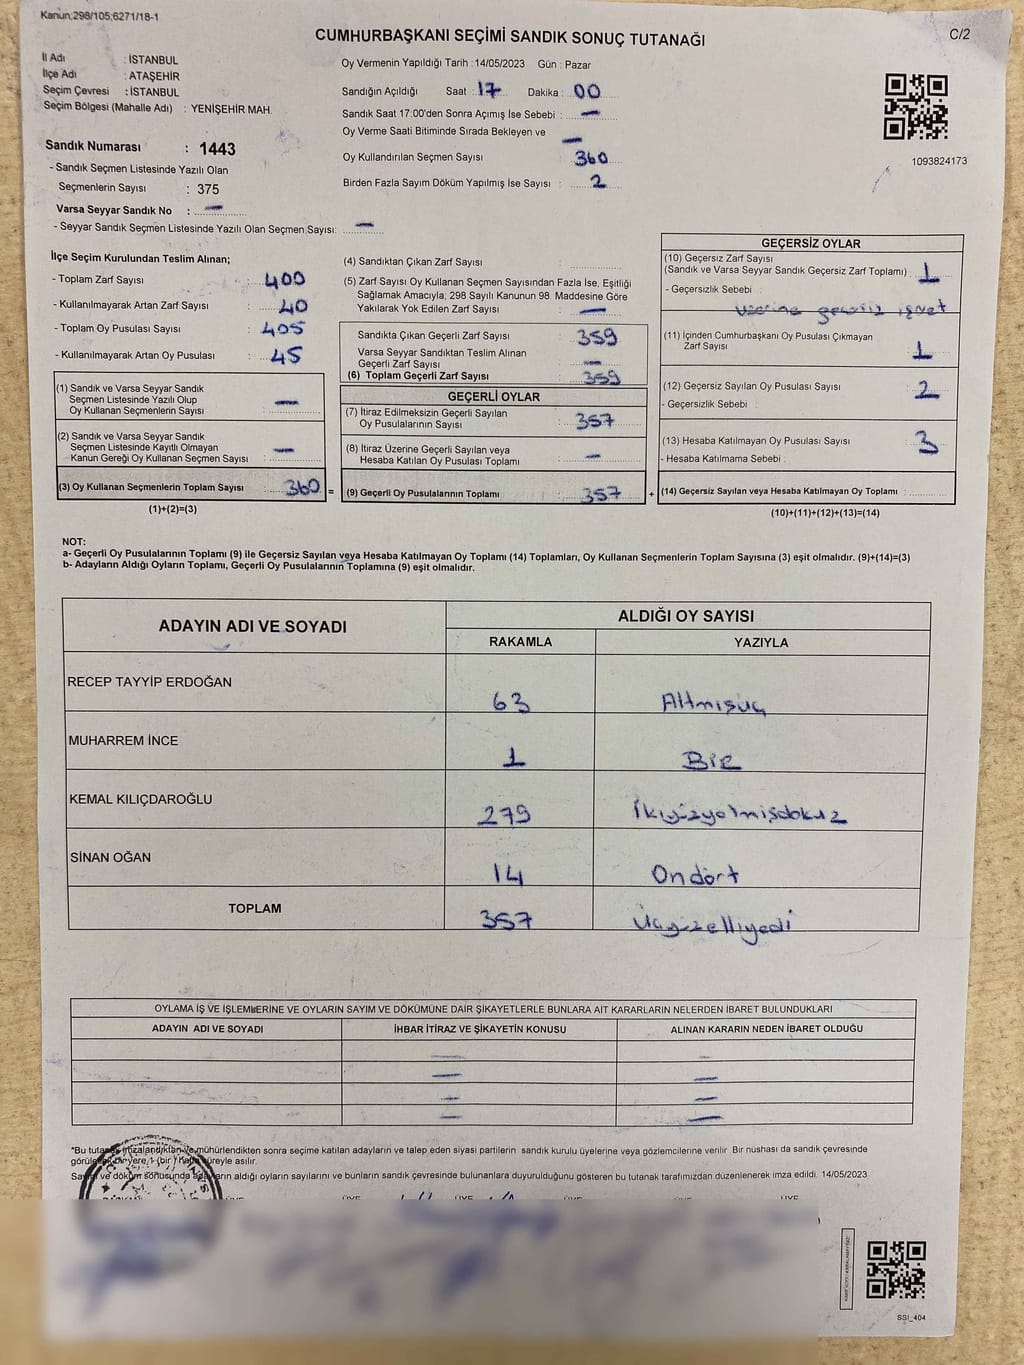 Kanun;298/105;6271/18-1
C/2
CUMHURBAŞKANI SEÇİMİ SANDIK SONUÇ TUTANAĞI
İl Adı : İSTANBUL
İlçe Adı : ATAŞEHİR
Seçim Çevresi : İSTANBUL
Seçim Bölgesi (Mahalle Adı) : YENİŞEHİR MAH.
Sandık Numarası : 1443
- Sandık Seçmen Listesinde Yazılı Olan
Seçmenlerin Sayısı : 375
Varsa Seyyar Sandık No : —
- Seyyar Sandık Seçmen Listesinde Yazılı Olan Seçmen Sayısı: —
Oy Vermenin Yapıldığı Tarih : 14/05/2023 Gün : Pazar
Sandığın Açıldığı Saat : 17 Dakika : 00
Sandık Saat 17:00'den Sonra Açımış İse Sebebi : —
Oy Verme Saati Bitiminde Sırada Bekleyen ve —
Oy Kullandırılan Seçmen Sayısı 360
Birden Fazla Sayım Döküm Yapılmış İse Sayısı : 2
1093824173
İlçe Seçim Kurulundan Teslim Alınan;
- Toplam Zarf Sayısı : 400
- Kullanılmayarak Artan Zarf Sayısı : 40
- Toplam Oy Pusulası Sayısı : 405
- Kullanılmayarak Artan Oy Pusulası : 45
(1) Sandık ve Varsa Seyyar Sandık
Seçmen Listesinde Yazılı Olup
Oy Kullanan Seçmenlerin Sayısı : —
(2) Sandık ve Varsa Seyyar Sandık
Seçmen Listesinde Kayıtlı Olmayan
Kanun Gereği Oy Kullanan Seçmen Sayısı : —
(3) Oy Kullanan Seçmenlerin Toplam Sayısı : 360 =
(1)+(2)=(3)
(4) Sandıktan Çıkan Zarf Sayısı :
(5) Zarf Sayısı Oy Kullanan Seçmen Sayısından Fazla İse, Eşitliği
Sağlamak Amacıyla; 298 Sayılı Kanunun 98. Maddesine Göre
Yakılarak Yok Edilen Zarf Sayısı : —
Sandıkta Çıkan Geçerli Zarf Sayısı : 359
Varsa Seyyar Sandıktan Teslim Alınan
Geçerli Zarf Sayısı : —
(6) Toplam Geçerli Zarf Sayısı : 359
GEÇERLİ OYLAR
(7) İtiraz Edilmeksizin Geçerli Sayılan
Oy Pusulalarının Sayısı : 357
(8) İtiraz Üzerine Geçerli Sayılan veya
Hesaba Katılan Oy Pusulası Toplamı : —
(9) Geçerli Oy Pusulalarının Toplamı : 357 +
GEÇERSİZ OYLAR
(10) Geçersiz Zarf Sayısı
(Sandık ve Varsa Seyyar Sandık Geçersiz Zarf Toplamı) : 1
- Geçersizlik Sebebi :
üzerine geçersiz işaret
(11) İçinden Cumhurbaşkanı Oy Pusulası Çıkmayan
Zarf Sayısı : 1
(12) Geçersiz Sayılan Oy Pusulası Sayısı : 2
- Geçersizlik Sebebi :
(13) Hesaba Katılmayan Oy Pusulası Sayısı : 3
- Hesaba Katılmama Sebebi :
(14) Geçersiz Sayılan veya Hesaba Katılmayan Oy Toplamı :
(10)+(11)+(12)+(13)=(14)
NOT:
a- Geçerli Oy Pusulalarının Toplamı (9) ile Geçersiz Sayılan veya Hesaba Katılmayan Oy Toplamı (14) Toplamları, Oy Kullanan Seçmenlerin Toplam Sayısına (3) eşit olmalıdır. (9)+(14)=(3)
b- Adayların Aldığı Oyların Toplamı, Geçerli Oy Pusulalarının Toplamına (9) eşit olmalıdır.
ADAYIN ADI VE SOYADI
ALDIĞI OY SAYISI
RAKAMLA YAZIYLA
RECEP TAYYİP ERDOĞAN 63 Altmışüç
MUHARREM İNCE 1 Bir
KEMAL KILIÇDAROĞLU 279 İkiyüzyetmişdokuz
SİNAN OĞAN 14 Ondört
TOPLAM 357 Üçyüzelliyedi
OYLAMA İŞ VE İŞLEMLERİNE VE OYLARIN SAYIM VE DÖKÜMÜNE DAİR ŞİKAYETLERLE BUNLARA AİT KARARLARIN NELERDEN İBARET BULUNDUKLARI
ADAYIN ADI VE SOYADI İHBAR İTİRAZ VE ŞİKAYETİN KONUSU ALINAN KARARIN NEDEN İBARET OLDUĞU
— —
— —
— —
— —
*Bu tutanak imzalandıktan ve mühürlendikten sonra seçime katılan adayların ve talep eden siyasi partilerin sandık kurulu üyelerine veya gözlemcilerine verilir. Bir nüshası da sandık çevresinde
görülecek bir yere 1 (bir) hafta süreyle asılır.
Sayım ve döküm sonusunda adayların aldığı oyların sayılarını ve bunların sandık çevresinde bulunanlara duyurulduğunu gösteren bu tutanak tarafımızdan düzenlenerek imza edildi. 14/05/2023
ÜYE ÜYE ÜYE ÜYE
SSI_404